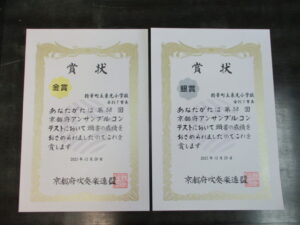 賞状
金賞
精華町立東光小学校
金打7重奏
あなたがたは第58回
京都府アンサンブルコン
テストにおいて頭書の成績を
おさめられましたのでこれを
賞します
2021年12月19日
京都府吹奏楽連盟
賞状
銀賞
精華町立東光小学校
金打7重奏
あなたがたは第58回
京都府アンサンブルコン
テストにおいて頭書の成績を
おさめられましたのでこれを
賞します
2021年12月19日
京都府吹奏楽連盟